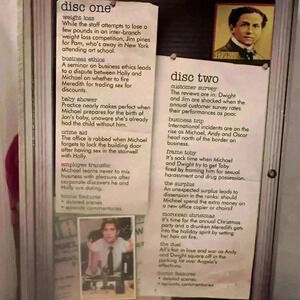 disc one
weight loss
While the staff attempts to lose a
few pounds in an inter-branch
weight loss competition, Jim pines
for Pam, who's away in New York
attending art school.
business ethics
A seminar on business ethics leads
to a dispute between Holly and
Michael on whether to fire
Meredith for trading sex for
discounts.
baby shower
Practice nearly makes perfect when
Michael prepares for the birth of
Jan's baby, unaware she's already
had the child without him.
crime aid
The office is robbed when Michael
forgets to lock the building door
after having sex in the stairwell
with Holly.
employee transfer
Michael learns never to mix
business with pleasure after
corporate discovers he and
Holly are dating.
bonus features
• deleted scenes
• episode commentaries
disc two
customer survey
The reviews are in: Dwight
and Jim are shocked when the
annual customer survey rates
their performances as poor.
business trip
International incidents are on the
rise as Michael, Andy and Oscar
head north of the border on
business.
frame toby
It's sock time when Michael
and Dwight try to get Toby
fired by framing him for sexual
harassment and drug possession.
the surplus
An unexpected surplus leads to
dissension in the ranks: should
Michael spend the extra money on
a new office copier or chairs?
moroccan christmas
It's time for the annual Christmas
party and a drunken Meredith gets
into the holiday spirit by setting
her hair on fire.
the duel
All's fair in love and war as Andy
and Dwight square off in the
parking lot over Angela's
affections.
bonus features
• deleted scenes
• episode commentaries